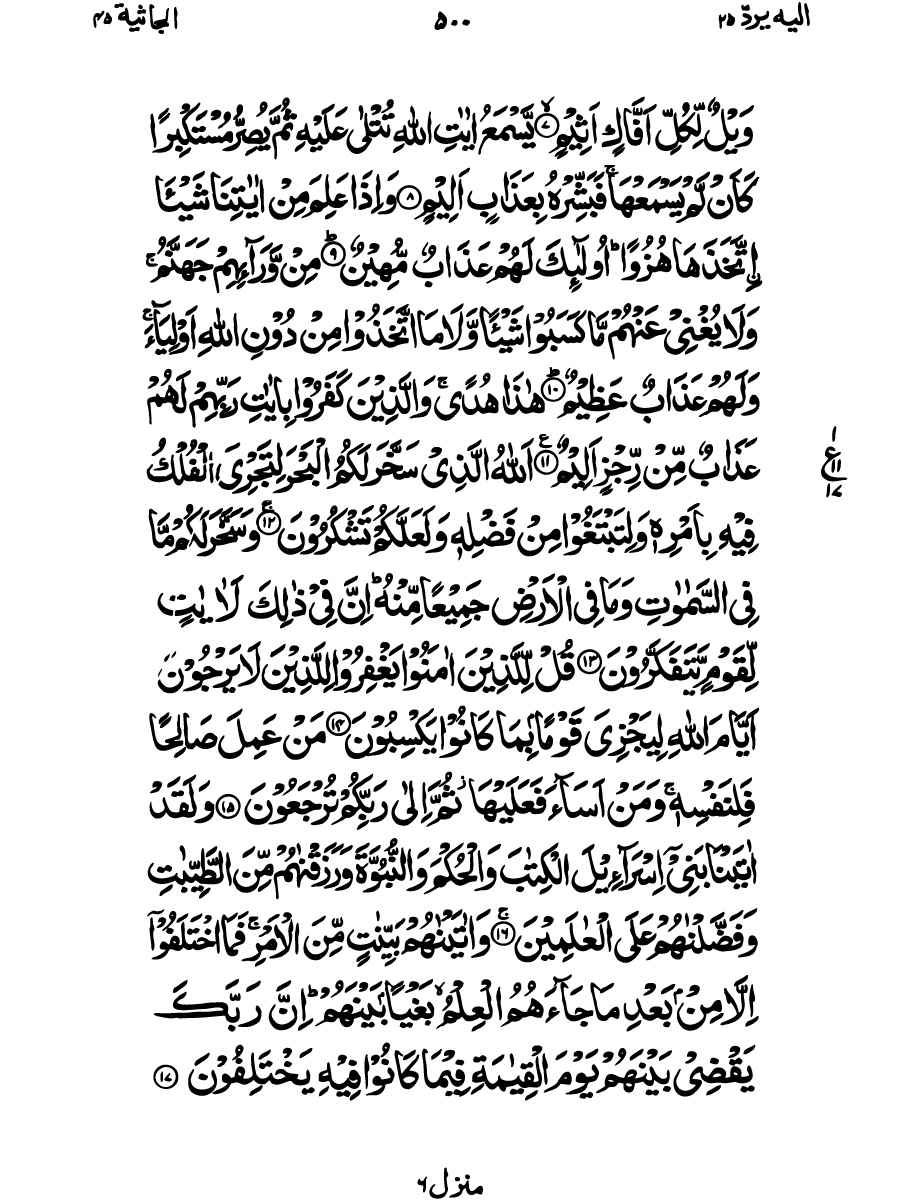 اليه يردّ ٢٥
٥٠٠
الجاثية ٤٥
وَيْلٌ لِّكُلِّ اَفَّاكٍ اَثِيْمٍ ۙ﴿٧﴾ يَّسْمَعُ اٰيٰتِ اللّٰهِ تُتْلٰى عَلَيْهِ ثُمَّ يُصِرُّ مُسْتَكْبِرًا
كَاَنْ لَّمْ يَسْمَعْهَا ۚ فَبَشِّرْهُ بِعَذَابٍ اَلِيْمٍ ﴿٨﴾ وَاِذَا عَلِمَ مِنْ اٰيٰتِنَا شَيْـًٔا
اِۨتَّخَذَهَا هُزُوًا ؕ اُولٰٓئِكَ لَهُمْ عَذَابٌ مُّهِيْنٌ ؕ﴿٩﴾ مِنْ وَّرَآئِهِمْ جَهَنَّمُ ۚ
وَلَا يُغْنِيْ عَنْهُمْ مَّا كَسَبُوْا شَيْـًٔا وَّلَا مَا اتَّخَذُوْا مِنْ دُوْنِ اللّٰهِ اَوْلِيَآءَ ۚ
وَلَهُمْ عَذَابٌ عَظِيْمٌ ؕ﴿١٠﴾ هٰذَا هُدًى ۚ وَالَّذِيْنَ كَفَرُوْا بِاٰيٰتِ رَبِّهِمْ لَهُمْ
عَذَابٌ مِّنْ رِّجْزٍ اَلِيْمٌ ۧ﴿١١﴾ اَللّٰهُ الَّذِيْ سَخَّرَ لَكُمُ الْبَحْرَ لِتَجْرِيَ الْفُلْكُ
فِيْهِ بِاَمْرِهٖ وَلِتَبْتَغُوْا مِنْ فَضْلِهٖ وَلَعَلَّكُمْ تَشْكُرُوْنَ ۚ﴿١٢﴾ وَسَخَّرَ لَكُمْ مَّا
فِي السَّمٰوٰتِ وَمَا فِي الْاَرْضِ جَمِيْعًا مِّنْهُ ؕ اِنَّ فِيْ ذٰلِكَ لَاٰيٰتٍ
لِّقَوْمٍ يَّتَفَكَّرُوْنَ ﴿١٣﴾ قُلْ لِّلَّذِيْنَ اٰمَنُوْا يَغْفِرُوْا لِلَّذِيْنَ لَا يَرْجُوْنَ
اَيَّامَ اللّٰهِ لِيَجْزِيَ قَوْمًۢا بِمَا كَانُوْا يَكْسِبُوْنَ ﴿١٤﴾ مَنْ عَمِلَ صَالِحًا
فَلِنَفْسِهٖ ۚ وَمَنْ اَسَآءَ فَعَلَيْهَا ؗ ثُمَّ اِلٰى رَبِّكُمْ تُرْجَعُوْنَ ﴿١٥﴾ وَلَقَدْ
اٰتَيْنَا بَنِيْۤ اِسْرَآءِيْلَ الْكِتٰبَ وَالْحُكْمَ وَالنُّبُوَّةَ وَرَزَقْنٰهُمْ مِّنَ الطَّيِّبٰتِ
وَفَضَّلْنٰهُمْ عَلَى الْعٰلَمِيْنَ ۚ﴿١٦﴾ وَاٰتَيْنٰهُمْ بَيِّنٰتٍ مِّنَ الْاَمْرِ ۚ فَمَا اخْتَلَفُوْۤا
اِلَّا مِنْۢ بَعْدِ مَا جَآءَهُمُ الْعِلْمُ ۙ بَغْيًۢا بَيْنَهُمْ ؕ اِنَّ رَبَّكَ
يَقْضِيْ بَيْنَهُمْ يَوْمَ الْقِيٰمَةِ فِيْمَا كَانُوْا فِيْهِ يَخْتَلِفُوْنَ ﴿١٧﴾
١
ع
١١
١٧
منزل ٦